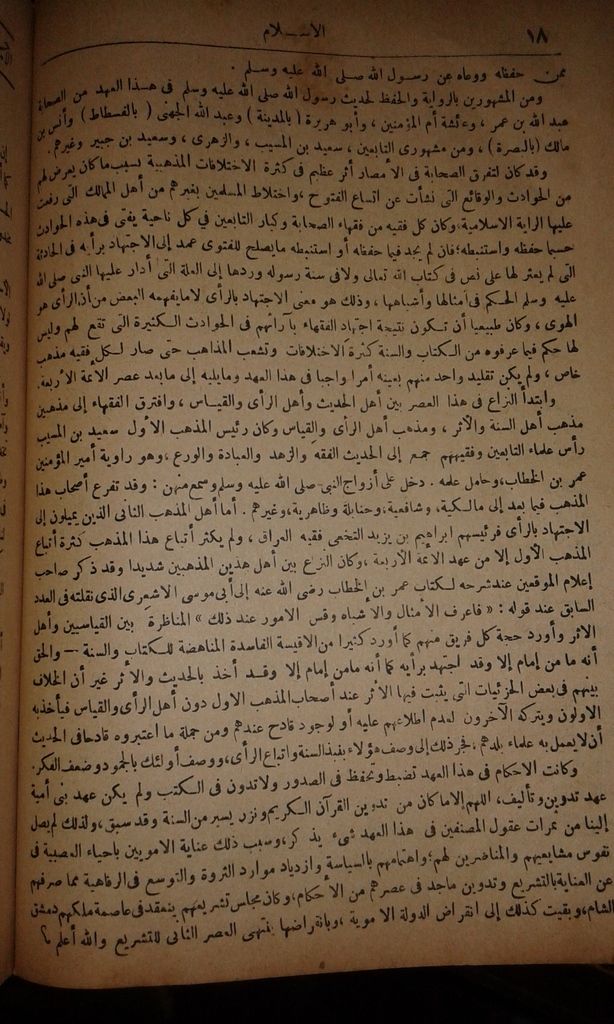 ١٨
الاسلام
ممن حفظه ووعاه عن رسول الله صلى الله عليه وسلم .
ومن المشهورين بالرواية والحفظ لحديث رسول الله صلى الله عليه وسلم فى هذا العهد من الصحابة
عبد الله بن عمر ، وعائشة أم المؤمنين ، وأبو هريرة ( بالمدينة ) وعبد الله الجهنى ( بالفسطاط ) وأنس بن
مالك (بالبصرة) ، ومن مشهورى التابعين ، سعيد بن المسيب ، والزهرى ، وسعيد بن جبير وغيرهم .
وقد كان لتفرق الصحابة فى الأمصار أثر عظيم فى كثرة الاختلافات المذهبية بسبب ما كان يعرض لهم
من الحوادث والوقائع التى نشأت عن اتساع الفتوح ، واختلاط المسلمين بغيرهم من أهل الممالك التى رفعت
عليها الراية الاسلامية ، وكان كل فقيه من فقهاء الصحابة وكبار التابعين في كل ناحية يفتى فى هذه الحوادث
حسبما حفظه واستنبطه ؛ فان لم يجد فيما حفظه أو استنبطه ما يصلح للفتوى عمد إلى الاجتهاد برأيه فى الحادثة
التى لم يعثر لها على نص فى كتاب الله تعالى ولا فى سنة رسوله وردها إلى العلة التى أدار عليها النبى صلى الله
عليه وسلم الحكم فى أمثالها وأشباهها ، وذلك هو معنى الاجتهاد بالرأى لا ما يفهمه البعض من أن الرأى هو
الهوى ، وكان طبيعيا أن تكون نتيجة اجتهاد الفقهاء بآرائهم فى الحوادث الكثيرة التى تقع لهم وليس
لها حكم فيما عرفوه من الكتاب والسنة كثرة الاختلافات وتشعب المذاهب حتى صار لكل فقيه مذهب
خاص ، ولم يكن تقليد واحد منهم بعينه أمرا واجبا فى هذا العهد وما يليه إلى ما بعد عصر الأئمة الأربعة .
وابتدأ النزاع فى هذا العصر بين أهل الحديث وأهل الرأى والقياس ، وافترق الفقهاء إلى مذهبين
مذهب أهل السنة والأثر ، ومذهب أهل الرأى والقياس وكان رئيس المذهب الأول سعيد بن المسيب
رأس علماء التابعين وفقيههم جمع إلى الحديث الفقه والزهد والعبادة والورع ، وهو راوية أمير المؤمنين
عمر بن الخطاب ، وحامل علمه . دخل على أزواج النبى صلى الله عليه وسلم وسمع منهن : وقد تفرع أصحاب هذا
المذهب فيما بعد إلى مالكية ، وشافعية ، وحنابلة وظاهرية ، وغيرهم . أما أهل المذهب الثانى الذين يميلون إلى
الاجتهاد بالرأى فرئيسهم ابراهيم بن يزيد النخعى فقيه العراق ، ولم يكثر أتباع هذا المذهب كثرة أتباع
المذهب الأول إلا من عهد الأئمة الأربعة ، وكان النزع بين أهل هذين المذهبين شديدا وقد ذكر صاحب
إعلام الموقعين عند شرحه لكتاب عمر بن الخطاب رضى الله عنه إلى أبى موسى الاشعرى الذى نقلته فى العدد
السابق عند قوله : « فاعرف الأمثال والأشباه وقس الامور عند ذلك » المناظرة بين القياسيين وأهل
الاثر وأورد حجة كل فريق منهم كما أورد كثيرا من الاقيسة الفاسدة المناهضة للكتاب والسنة — والحق
أنه ما من إمام إلا وقد اجتهد برأيه كما أنه ما من إمام إلا وقد أخذ بالحديث والأثر غير أن الخلاف
بينهم فى بعض الجزئيات التى يثبت فيها الأثر عند أصحاب المذهب الاول دون أهل الرأى والقياس فيأخذ به
الاولون ويتركه الآخرون لعدم اطلاعهم عليه أو لوجود قادح عندهم ومن جملة ما اعتبروه قادحا فى الحديث
أن لا يعمل به علماء بلدهم ، فجر ذلك إلى وصف هؤلاء بنبذ السنة واتباع الرأى ، ووصف أولئك بالجمود وضعف الفكر .
وكانت الاحكام فى هذا العهد تضبط وتحفظ فى الصدور ولا تدون فى الكتب ولم يكن عهد بنى أمية
عهد تدوين وتأليف ، اللهم إلا ما كان من تدوين القرآن الكريم ونزر يسير من السنة وقد سبق ، ولذلك لم يصل
إلينا من ثمرات عقول المصنفين فى هذا العهد شىء يذكر ، وسبب ذلك عناية الامويين باحياء العصبية فى
نفوس مشايعيهم والمناضرين لهم ؛ واهتمامهم بالسياسة وازدياد موارد الثروة والتوسع فى الرفاهية مما صرفهم
عن العناية بالتشريع وتدوين ما جد فى عصرهم من الأحكام ، وكان مجلس تشريعهم ينعقد فى عاصمة ملكهم دمشق
الشام ، وبقيت كذلك إلى انقراض الدولة الاموية ، وبانقراضها ينتهى العصر الثانى للتشريع والله أعلم ؟